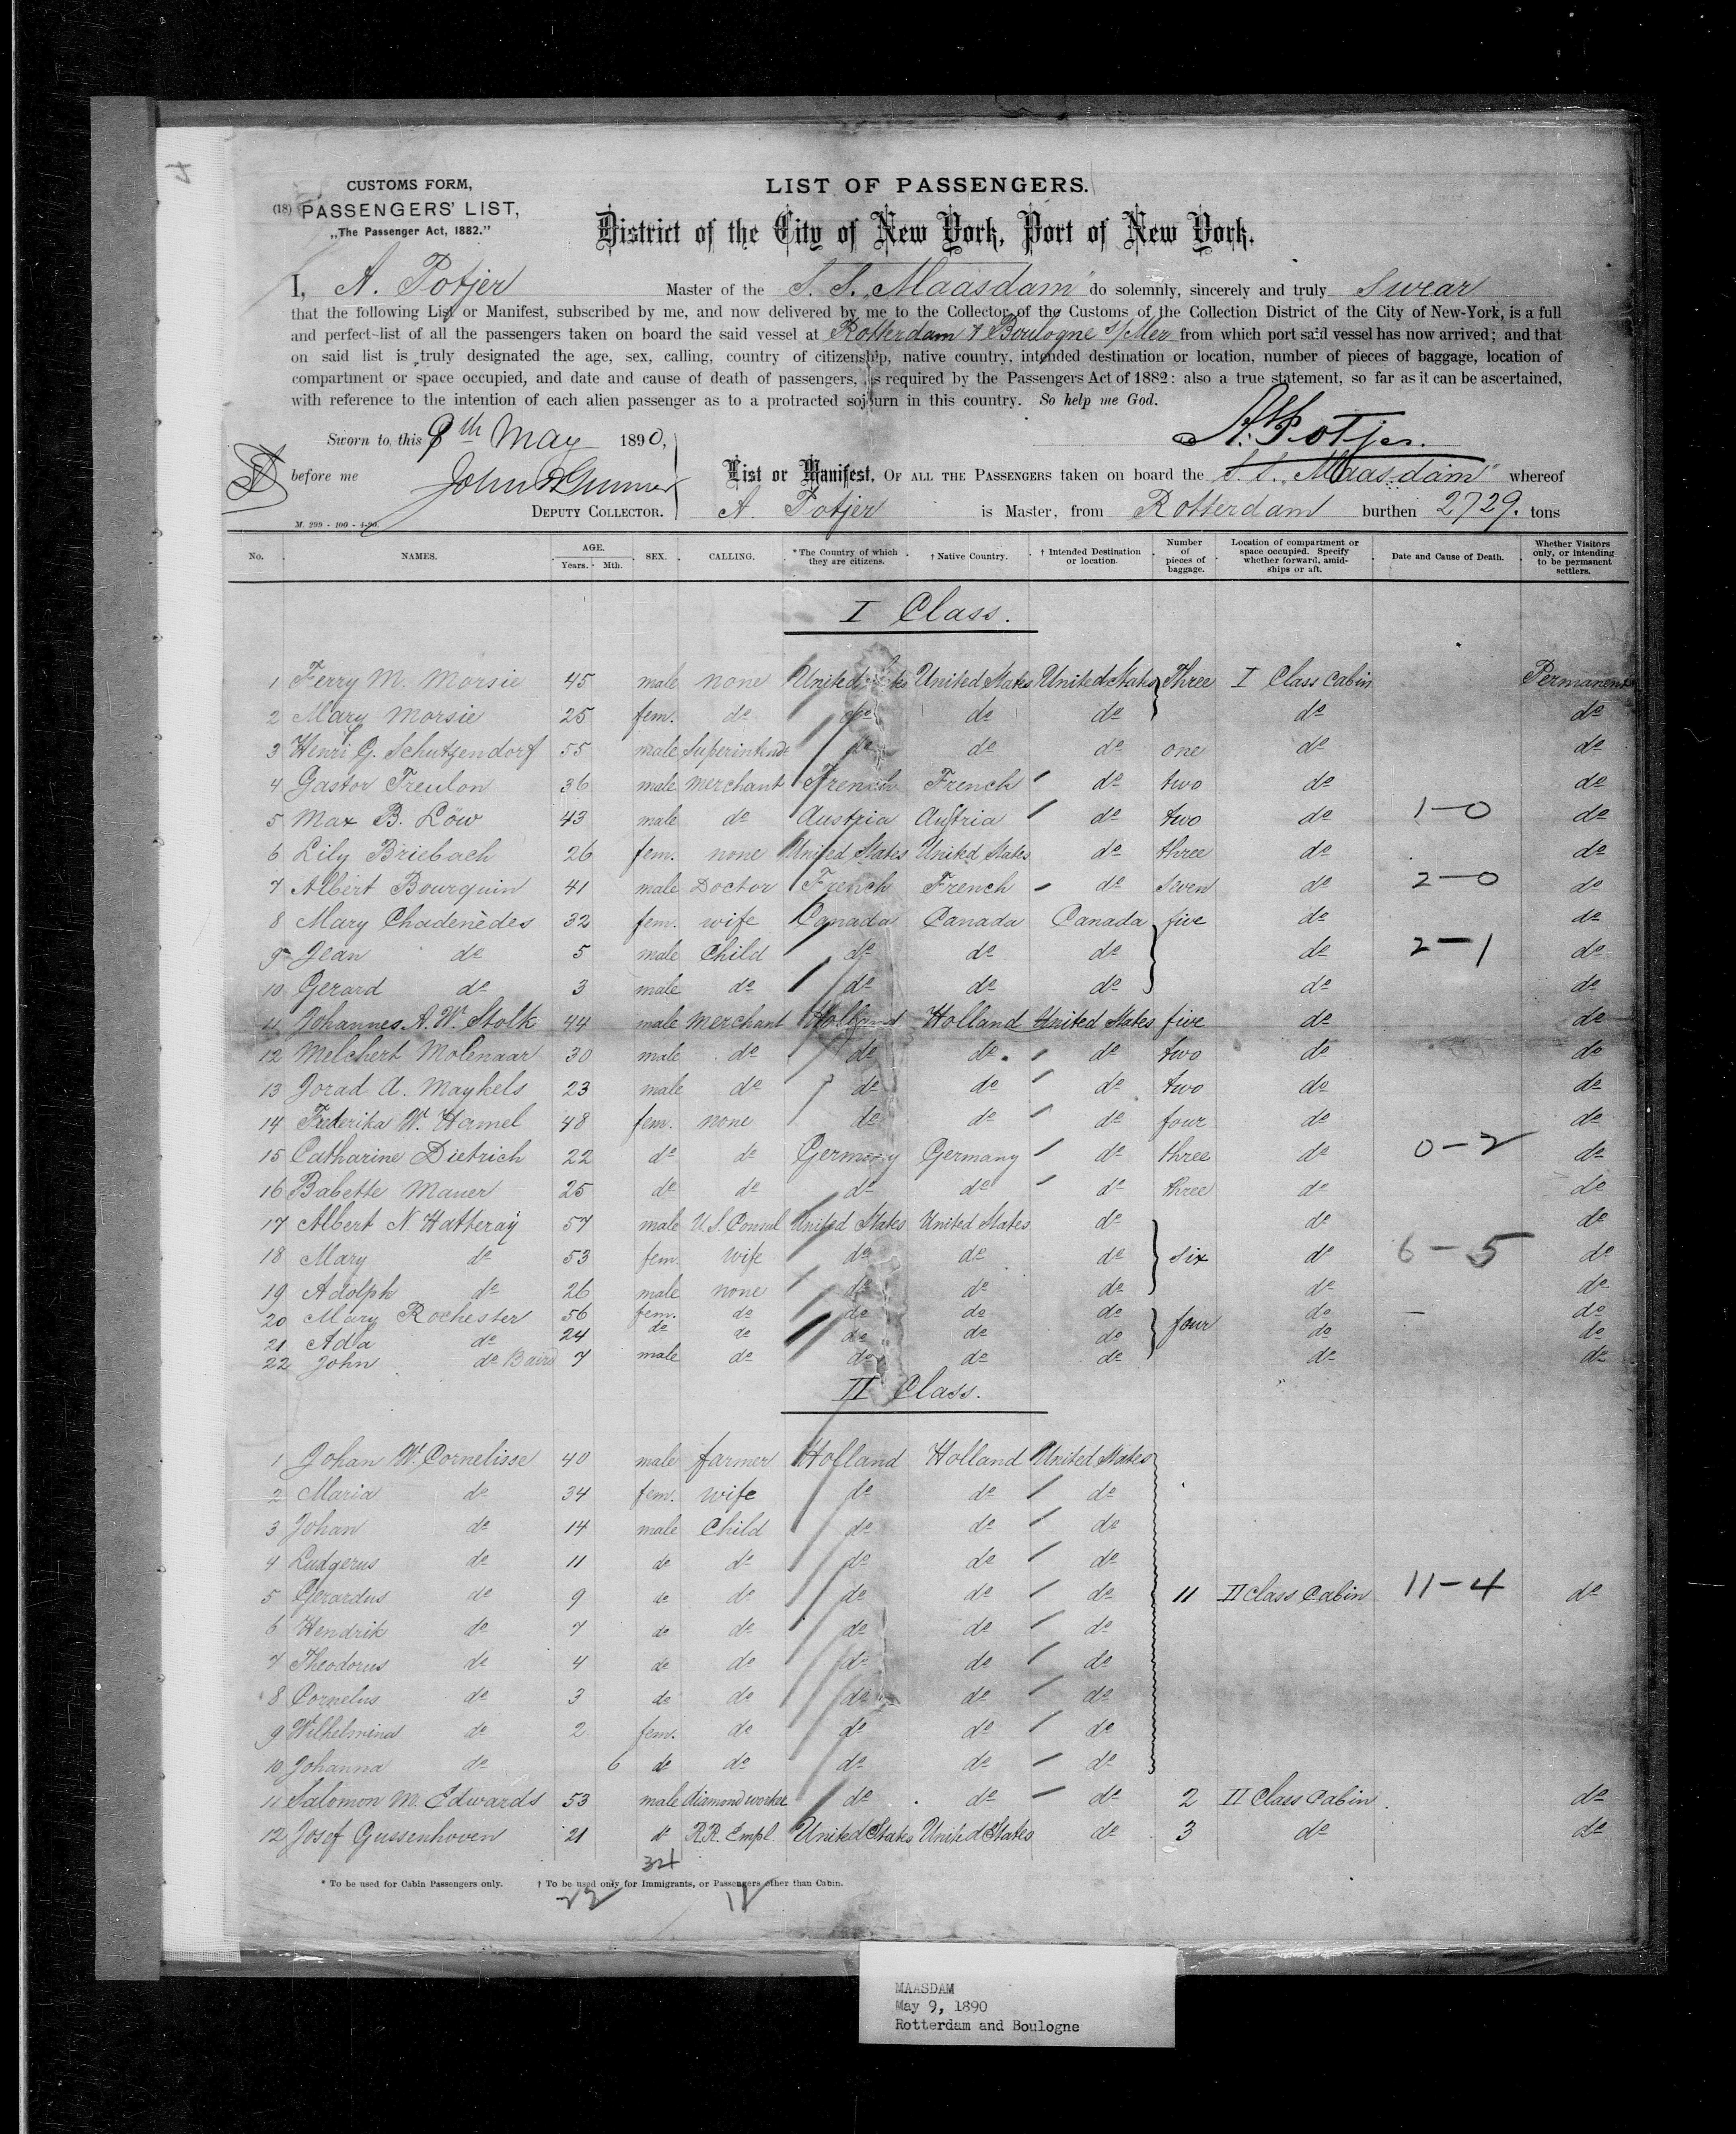 CUSTOMS FORM,
(18) PASSENGERS' LIST,
„The Passenger Act, 1882."
LIST OF PASSENGERS.
District of the City of New York, Port of New York.
I, A. Potjer Master of the S. S. „Maasdam" do solemnly, sincerely and truly swear
that the following List or Manifest, subscribed by me, and now delivered by me to the Collector of the Customs of the Collection District of the City of New-York, is a full
and perfect list of all the passengers taken on board the said vessel at Rotterdam & Boulogne s/Mer from which port said vessel has now arrived; and that
on said list is truly designated the age, sex, calling, country of citizenship, native country, intended destination or location, number of pieces of baggage, location of
compartment or space occupied, and date and cause of death of passengers, as required by the Passengers Act of 1882: also a true statement, so far as it can be ascertained,
with reference to the intention of each alien passenger as to a protracted sojourn in this country. So help me God.
Sworn to, this 9th May 1890,
A. Potjer.
before me John
DEPUTY COLLECTOR.
List or Manifest, OF ALL THE PASSENGERS taken on board the S. S. „Maasdam" whereof
A. Potjer is Master, from Rotterdam burthen 2729. tons
M. 299 - 100 - 4-90.
No. NAMES. AGE. Years. Mth. SEX. CALLING. * The Country of which they are citizens. † Native Country. † Intended Destination or location. Number of pieces of baggage. Location of compartment or space occupied. Specify whether forward, amidships or aft. Date and Cause of Death. Whether Visitors only, or intending to be permanent settlers.
I Class.
1 Ferry M. Morsie 45 male none United States United States United States Three I Class Cabin Permanent
2 Mary Morsie 25 fem. do do do do do do
3 Henri G. Schutzendorf 55 male Superintendt do do do one do do
4 Gastor Treulon 36 male merchant French French do two do do
5 Max B. Löw 43 male do Austria Austria do two do 1-0 do
6 Lily Briebach 26 fem. none United States United States do three do do
7 Albert Bourquin 41 male Doctor French French do seven do 2-0 do
8 Mary Chadenèdes 32 fem. wife Canada Canada Canada five do do
9 Jean do 5 male Child do do do do 2-1 do
10 Gerard do 3 male do do do do do do
11 Johannes A. W. Stolk 44 male merchant Holland Holland United States five do do
12 Melchert Molenaar 30 male do do do do two do do
13 Jorad A. Maykels 23 male do do do do two do do
14 Frederika W. Hamel 48 fem. none do do do four do do
15 Catharine Dietrich 22 do do Germany Germany do three do 0-2 do
16 Babette Mauer 25 do do do do do three do do
17 Albert N. Hatheray 57 male U.S. Consul United States United States do do do
18 Mary do 53 fem. wife do do do six do 6-5 do
19 Adolph do 26 male none do do do do do
20 Mary Rochester 56 fem. do do do do do do
21 Ada do 24 do do do do do four do do
22 John do Baird 7 male do do do do do do
II Class.
1 Johan W. Cornelisse 40 male farmer Holland Holland United States
2 Maria do 34 fem. wife do do do
3 Johan do 14 male Child do do do
4 Ludgerus do 11 do do do do do
5 Gerardus do 9 do do do do do 11 II Class Cabin 11-4 do
6 Hendrik do 7 do do do do do
7 Theodorus do 4 do do do do do
8 Cornelus do 3 do do do do do
9 Wilhelmina do 2 fem. do do do do
10 Johanna do 6 do do do do do
11 Salomon M. Edwards 53 male diamond worker do do do 2 II Class Cabin do
12 Josef Gussenhoven 21 do R.R. Empl. United States United States do 3 do do
34
* To be used for Cabin Passengers only. † To be used only for Immigrants, or Passengers other than Cabin.
22 12
MAASDAM
May 9, 1890
Rotterdam and Boulogne